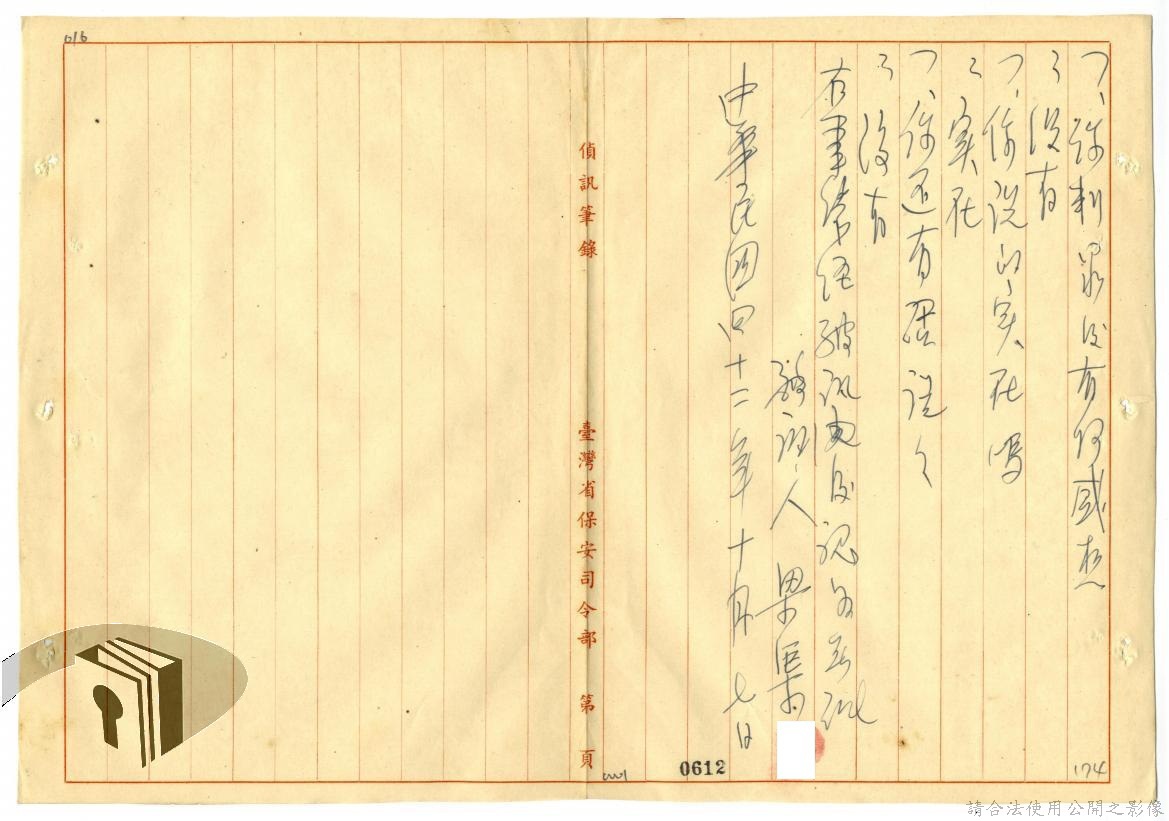 016
フ、你判罪後有何感想
ミ没有
フ、你説的实在嗎
ミ实在
フ、你还有話説么
ミ没有
右筆錄經被訊由後認為無訛
被訊人
中華民國四十二年十月七日
偵訊筆錄
臺灣省保安司令部 第 頁
0612
174
請合法使用公開之影像